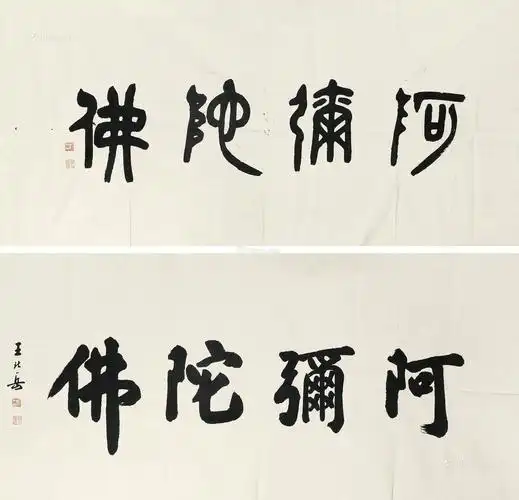 阿彌陀佛
阿彌陀佛
王北岳